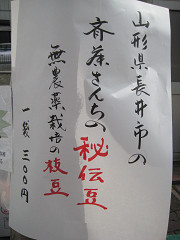 山形県長井市の
斉藤さんちの秘伝豆
無農薬栽培の枝豆
一袋 三〇〇円